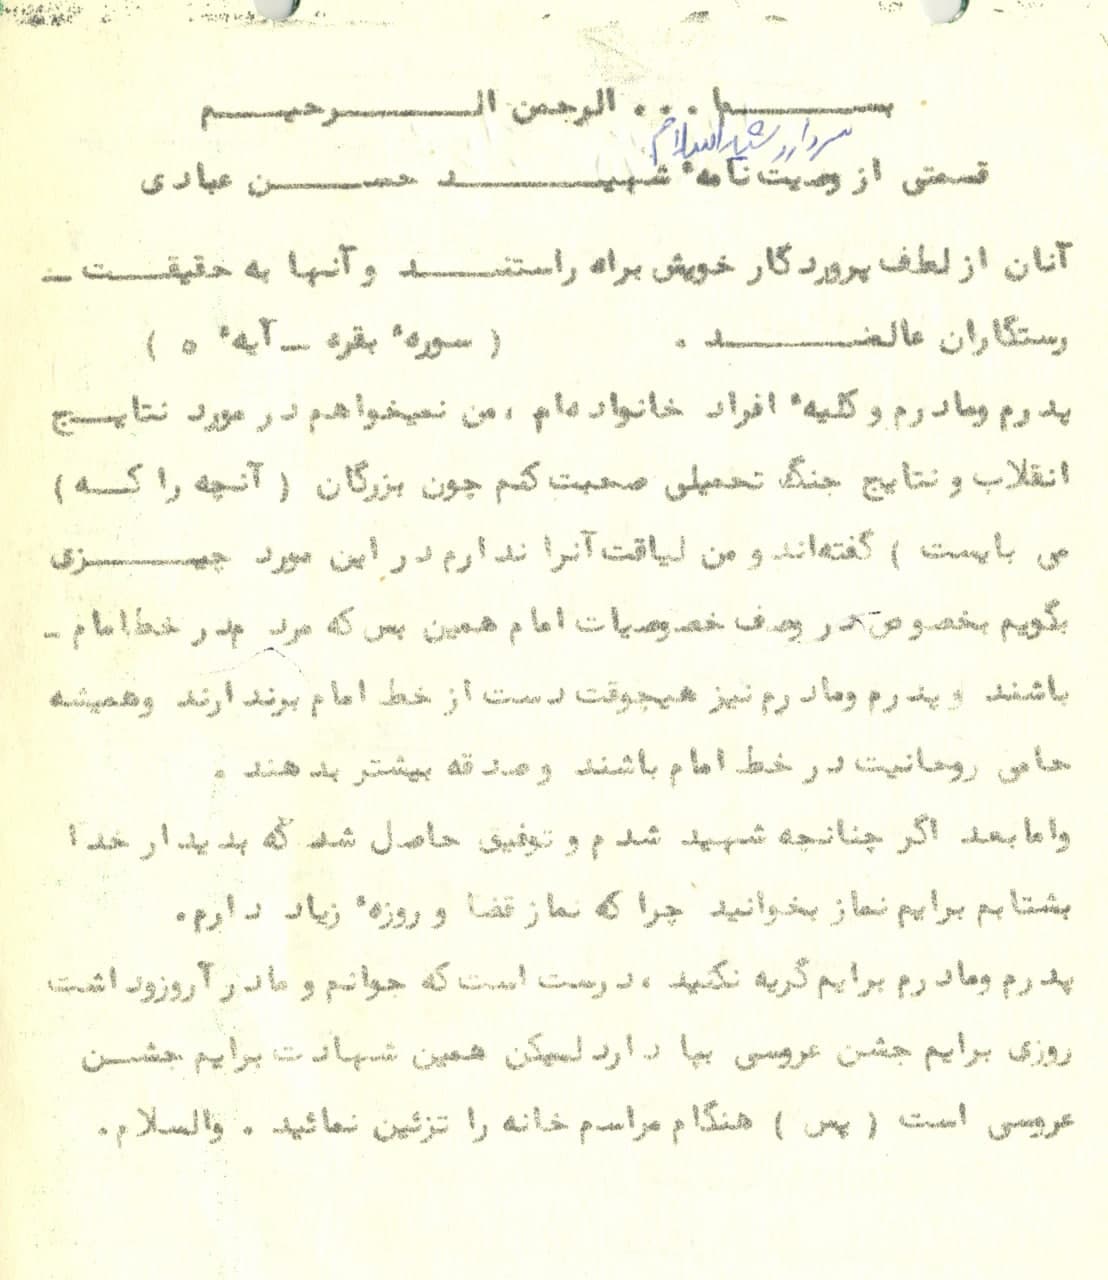 بسم ا... الرحمن الرحیم
سردار رشید اسلام
قسمتی از وصیت نامهٔ شهید حسن عبادی
آنان از لطف پروردگار خویش براه راستند و آنها به حقیقت -
رستگاران عالمند . ( سورهٔ بقره - آیهٔ ۵ )
پدرم ومادرم و کلیهٔ افراد خانواده‌ام ، من نمیخواهم در مورد نتایج
انقلاب و نتایج جنگ تحمیلی صحبت کنم چون بزرگان ( آنچه را که )
می بایست ) گفته‌اند و من لیاقت آنرا ندارم در این مورد چیزی
بگویم بخصوص در وصف خصوصیات امام همین بس که مردم در خط امام -
باشند و پدرم ومادرم نیز هیچوقت دست از خط امام برندارند وهمیشه
حامی روحانیت در خط امام باشند و صدقه بیشتر بدهند .
وامابعد اگر چنانچه شهید شدم و توفیق حاصل شد که بدیدار خدا
بشتابم برایم نماز بخوانید چرا که نماز قضا و روزهٔ زیاد دارم.
پدرم ومادرم برایم گریه نکنید ، درست است که جوانم و مادر آروزو داشت
روزی برایم جشن عروسی بپا دارد لیکن همین شهادت برایم جشن
عروسی است ( پس ) هنگام مراسم خانه را تزئین نمائید . والسلام.